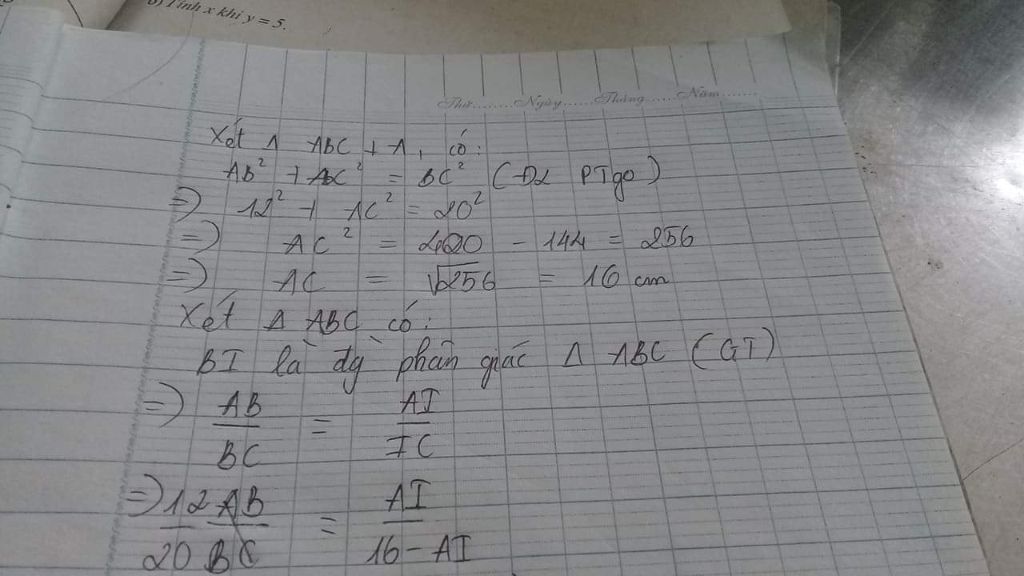 b) Tính x khi y = 5.
Thứ........Ngày......Tháng......Năm........
Xét Δ ABC ⊥ A, có:
AB² + AC² = BC² (ĐL PTgo)
=> 12² + AC² = 20²
=> AC² = 400 - 144 = 256
=> AC = √256 = 16 cm
Xét Δ ABC có:
BI là đg phân giác Δ ABC (GT)
=> AB/BC = AI/IC
=> 12/20 = AI/16 - AI